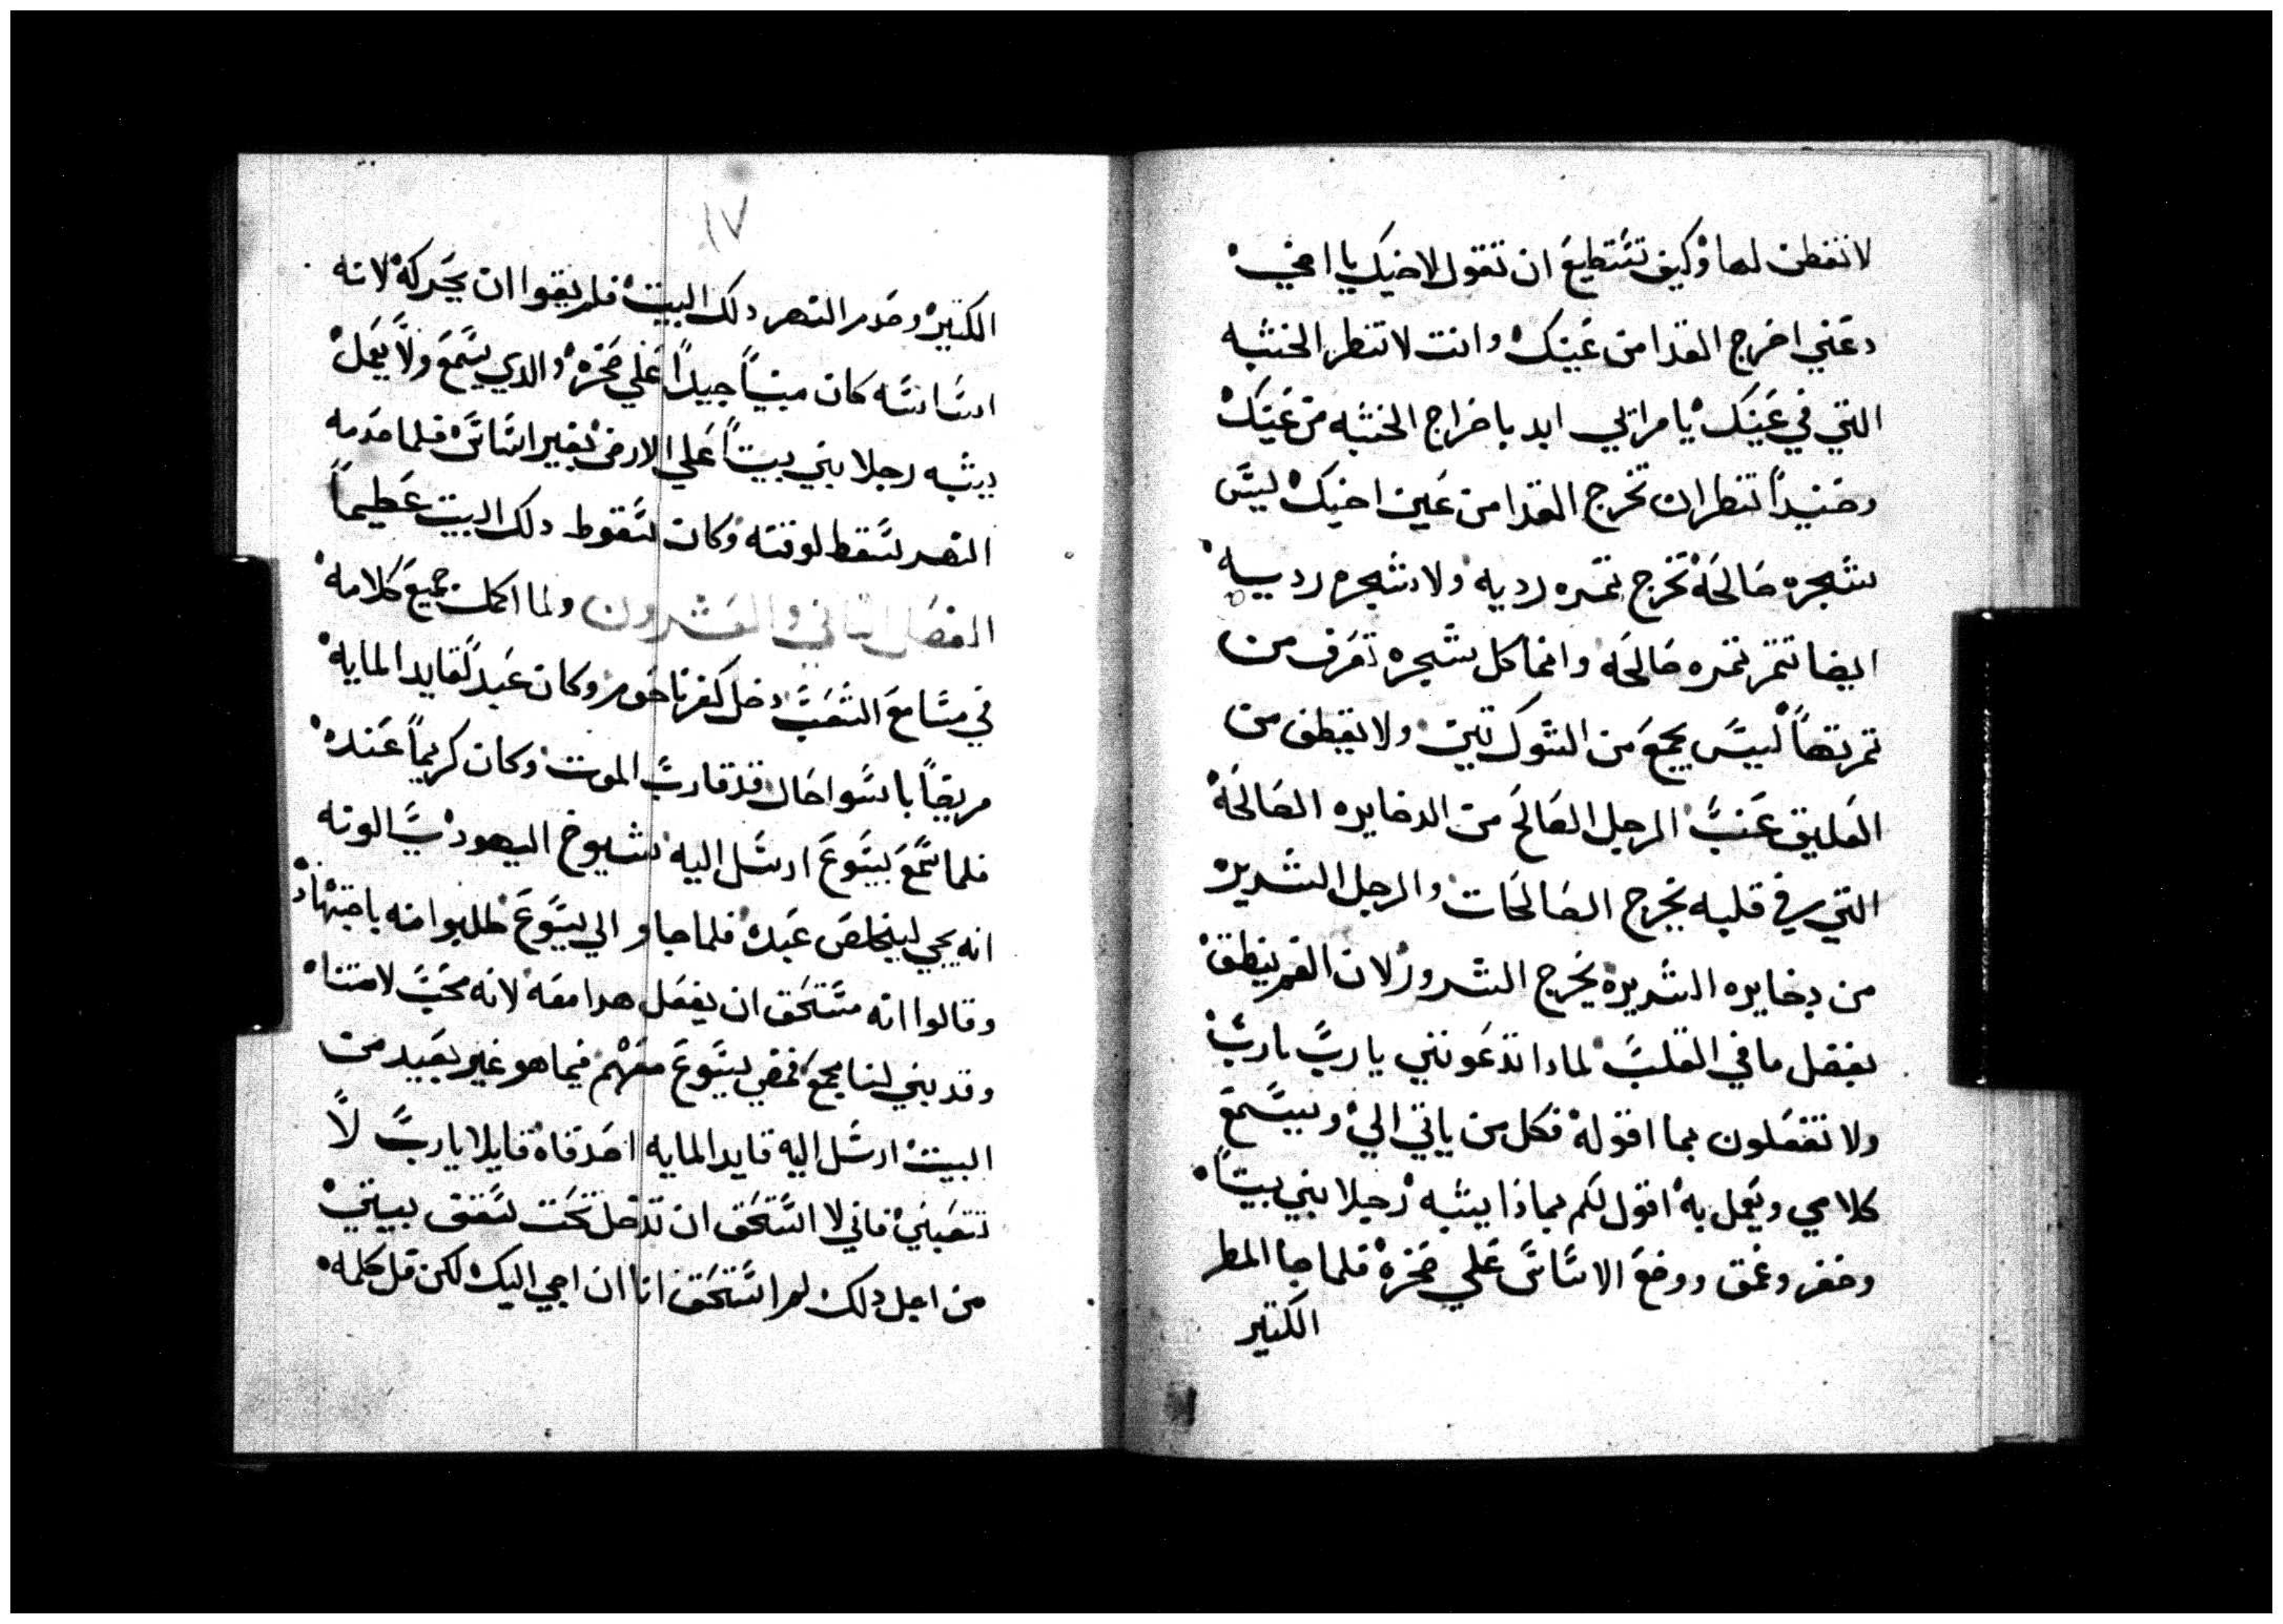 لا تفطن لها وكيف تستطيع ان تقول لاخيك يا اخي
دعني اخرج القدا من عينك وانت لا تنظر الخشبه
التي في عينك يا مراي ابدا باخراج الخشبه من عينك
وحنيدا تنظر ان تخرج القدا من عين اخيك ليس
شجره صالحه تخرج تمره رديه ولا شجره رديه
ايضا تتمر تمره صالحه وانما كل شجره تعرف من
تمرتها ليس يجمع من الشوك تين ولا يقطف من
العليق عنب الرجل الصالح من الدخايره الصالحه
التي في قلبه يخرج الصالحات والرجل الشرير
من دخايره الشريره يخرج الشرور لان الفم ينطق
بفضل ما في القلب لمادا تدعونني يا رب يا رب
ولا تفعلون بما اقوله فكل من ياتي الي ويسمع
كلامي ويعمل به اقول لكم بماذا يشبه رجلا بني بيتاً
وحفر وعمق ووضع الاساس علي صخره فلما جا المطر
الكتير
١٧
الكتير وصدم النهر دلك البيت فلم يقوا ان يحركه لانه
اساسه كان مبنياً جيداً علي صخره والدي يسمع ولا يعمل
يشبه رجلا بني بيتاً علي الارض بغير اساس فلما صدمه
النهر سقط لوقته وكان سقوط دلك البيت عظيماً
الفصل التاني والعشرون ولما اكمل جميع كلامه
في مسامع الشعب دخل كفرناحوم وكان عبد لقايد المايه
مريضاً باسوا حال قد قارب الموت وكان كريماً عنده
فلما سمع بيسوع ارسل اليه شيوخ اليهود يسالونه
انه يجي ليخلص عبده فلما جاو الي يسوع طلبوا منه باجتهاد
وقالوا انه مستحق ان يفعل هدا معه لانه محب لامتنا
وقد بني لنا مجمع فمضي يسوع معهم فيما هو غير بعيد من
البيت ارسل اليه قايد المايه اصدقاه قايلا يا رب لا
تتعبني فاني لا استحق ان تدخل تحت سقف بيتي
من اجل دلك لم استحق انا ان اجي اليك لكن قل كلمه